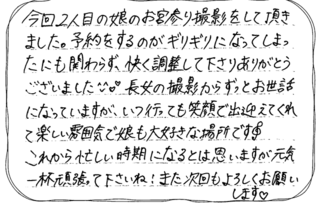 今回2人目の娘のお宮参り撮影をして頂き
ました。予約をするのがギリギリになってしまっ
たにも関わらず、快く調整して下さりありがとう
ございました 長女の撮影からずっとお世話
になっていますが、いつ行っても笑顔で出迎えてくれ
て楽しい雰囲気で娘も大好きな場所です
これから忙しい時期になるとは思いますが元気
一杯頑張って下さいね!また次回もよろしくお願い
します♡